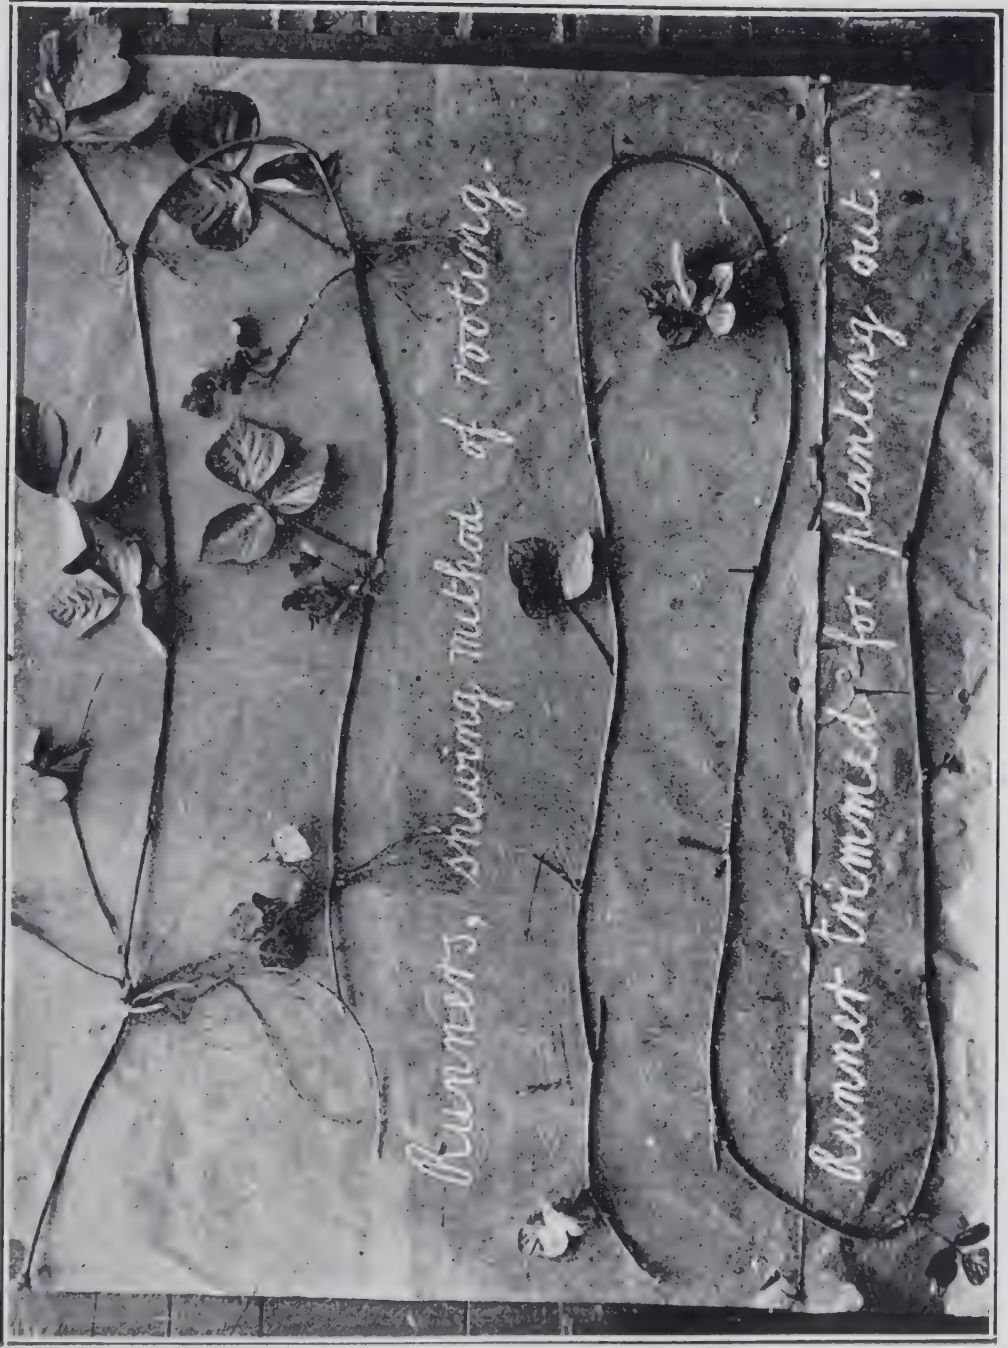 Runners, shewing method of rooting.
Runner trimmed for planting out.